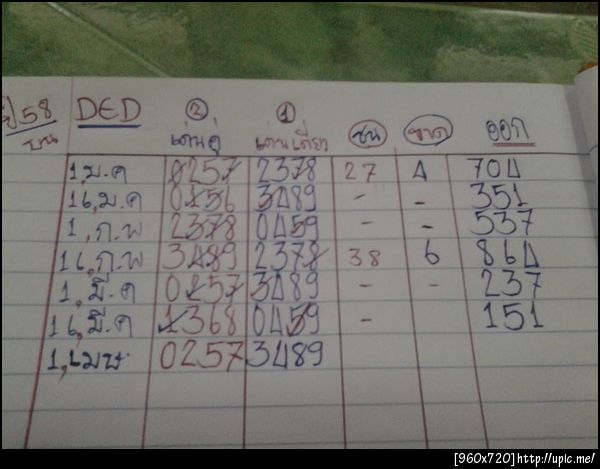 ปี58 DED ② ① ชน ขาด ออก
บน เด่นคู่ เด่นเดี่ยว
1,ม.ค 0257 2378 27 4 704
16,ม.ค 0156 3489 - - 351
1,ก.พ 2378 0459 - - 537
16,ก.พ 3489 2378 38 6 864
1,มี.ค 0257 3489 - - 237
16,มี.ค 1368 0459 - 151
1,เมษ. 0257 3489
[960x720]http://upic.me/